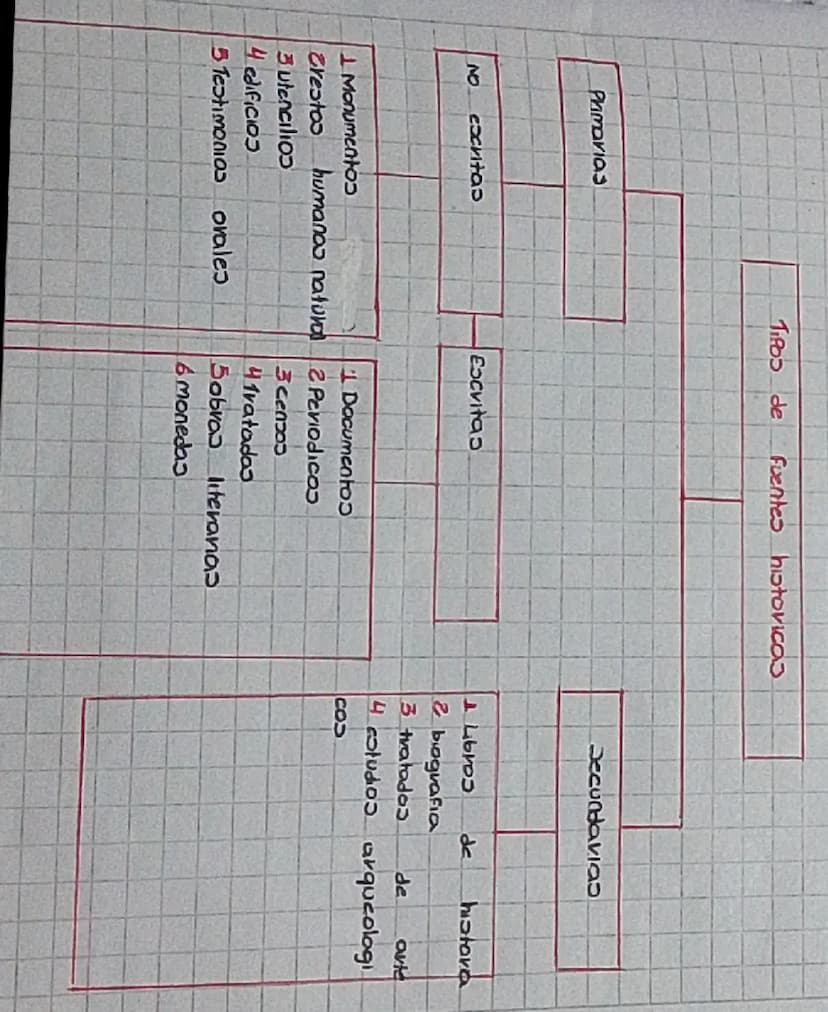 Tipos de fuentes historicas
Primarias
secundarias
no escritas
Escritas
1 Monumentos
2 restos humanos natural
3 utencilios
4 edificios
5 Testimonios orales
1 Documentos
2 Periodicos
3 censos
4 tratados
5 obras literarias
6 monedas
1 Libros de historia
2 biografia
3 tratados de arte
4 estudios arqueologi
cos